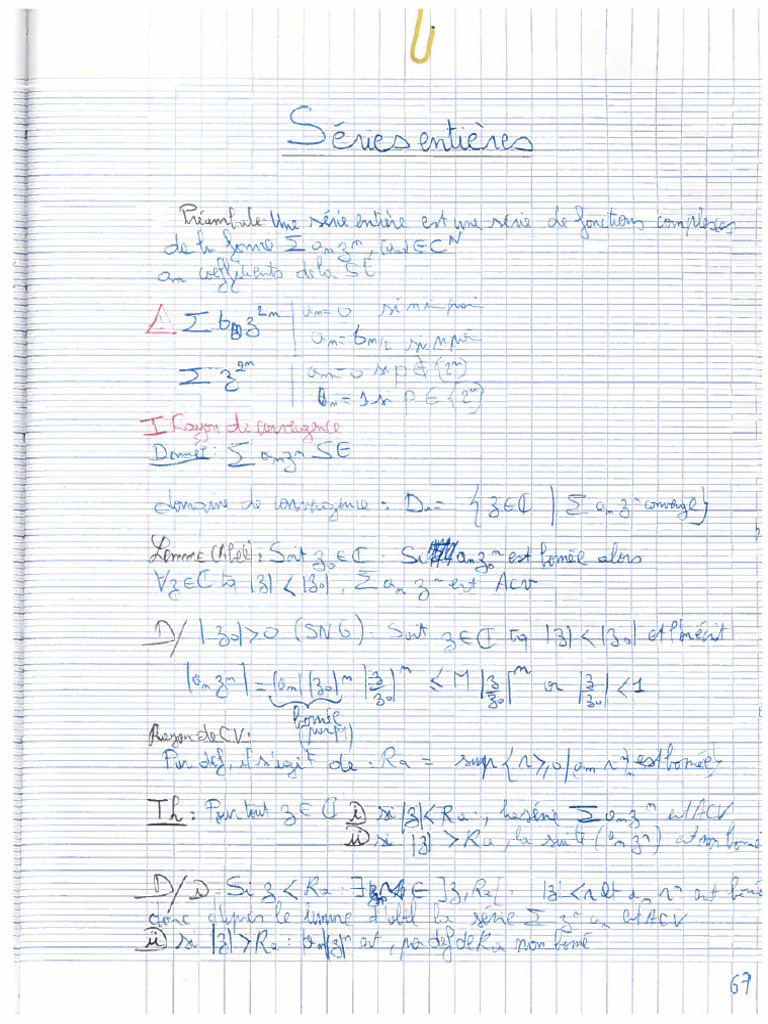 Séries entières
Préambule : Une série entière est une série de fonctions complexes
de la forme Σ aₙzⁿ, (aₙ) ∈ ℂᴺ
aₙ coefficients de la SE
⚠ Σ bₙz²ⁿ | aₙ = 0 si n impair
aₙ = bₙ/₂ si n pair
Σ z^2ⁿ | aₙ = 0 si p ∉ {2ⁿ}
aₙ = 1 si p ∈ {2ⁿ}
I Rayon de convergence
Donnée : Σ aₙzⁿ SE
domaine de convergence : Dₐ = {z ∈ ℂ | Σ aₙ zⁿ converge}
Lemme (Abel) : Soit z₀ ∈ ℂ. Si aₙz₀ⁿ est bornée alors
∀z ∈ ℂ tq |z| < |z₀|, Σ aₙ zⁿ est ACV
D/ |z₀| > 0 (SNG). Soit z ∈ ℂ tq |z| < |z₀| et l'on écrit
|aₙzⁿ| = |aₙ| |z₀|ⁿ |z/z₀|ⁿ ≤ M |z/z₀|ⁿ or |z/z₀| < 1
bornée
(par M)
Rayon de CV :
Par def, il s'agit de : Ra = sup {r ≥ 0 | aₙ rⁿ est bornée}
Th : Pour tout z ∈ ℂ i) si |z| < Ra, la série Σ aₙzⁿ est ACV
ii) si |z| > Ra, la suite (aₙzⁿ) est non borné
D/ Si z < Ra : ∃ r ∈ ]z, Ra[ . |z| < r et aₙ rⁿ est borné
donc d'après le lemme d'abel la série Σ zⁿ aₙ est ACV
ii) si |z| > Ra : aₙ|z|ⁿ est, par def de Ra non borné
67